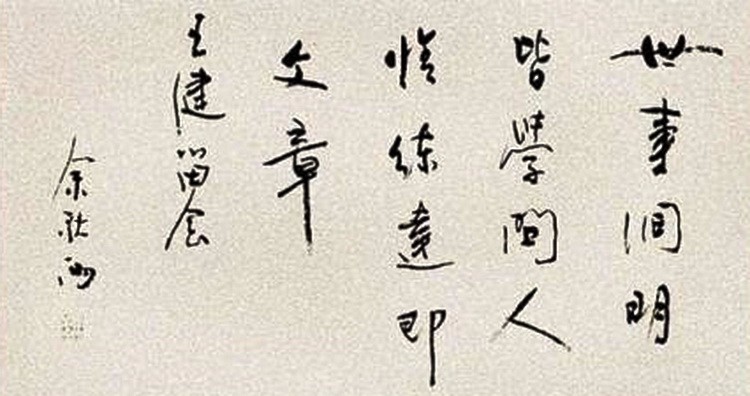 世事洞明
皆學問人
情练達即
文章
王健留念
余秋雨